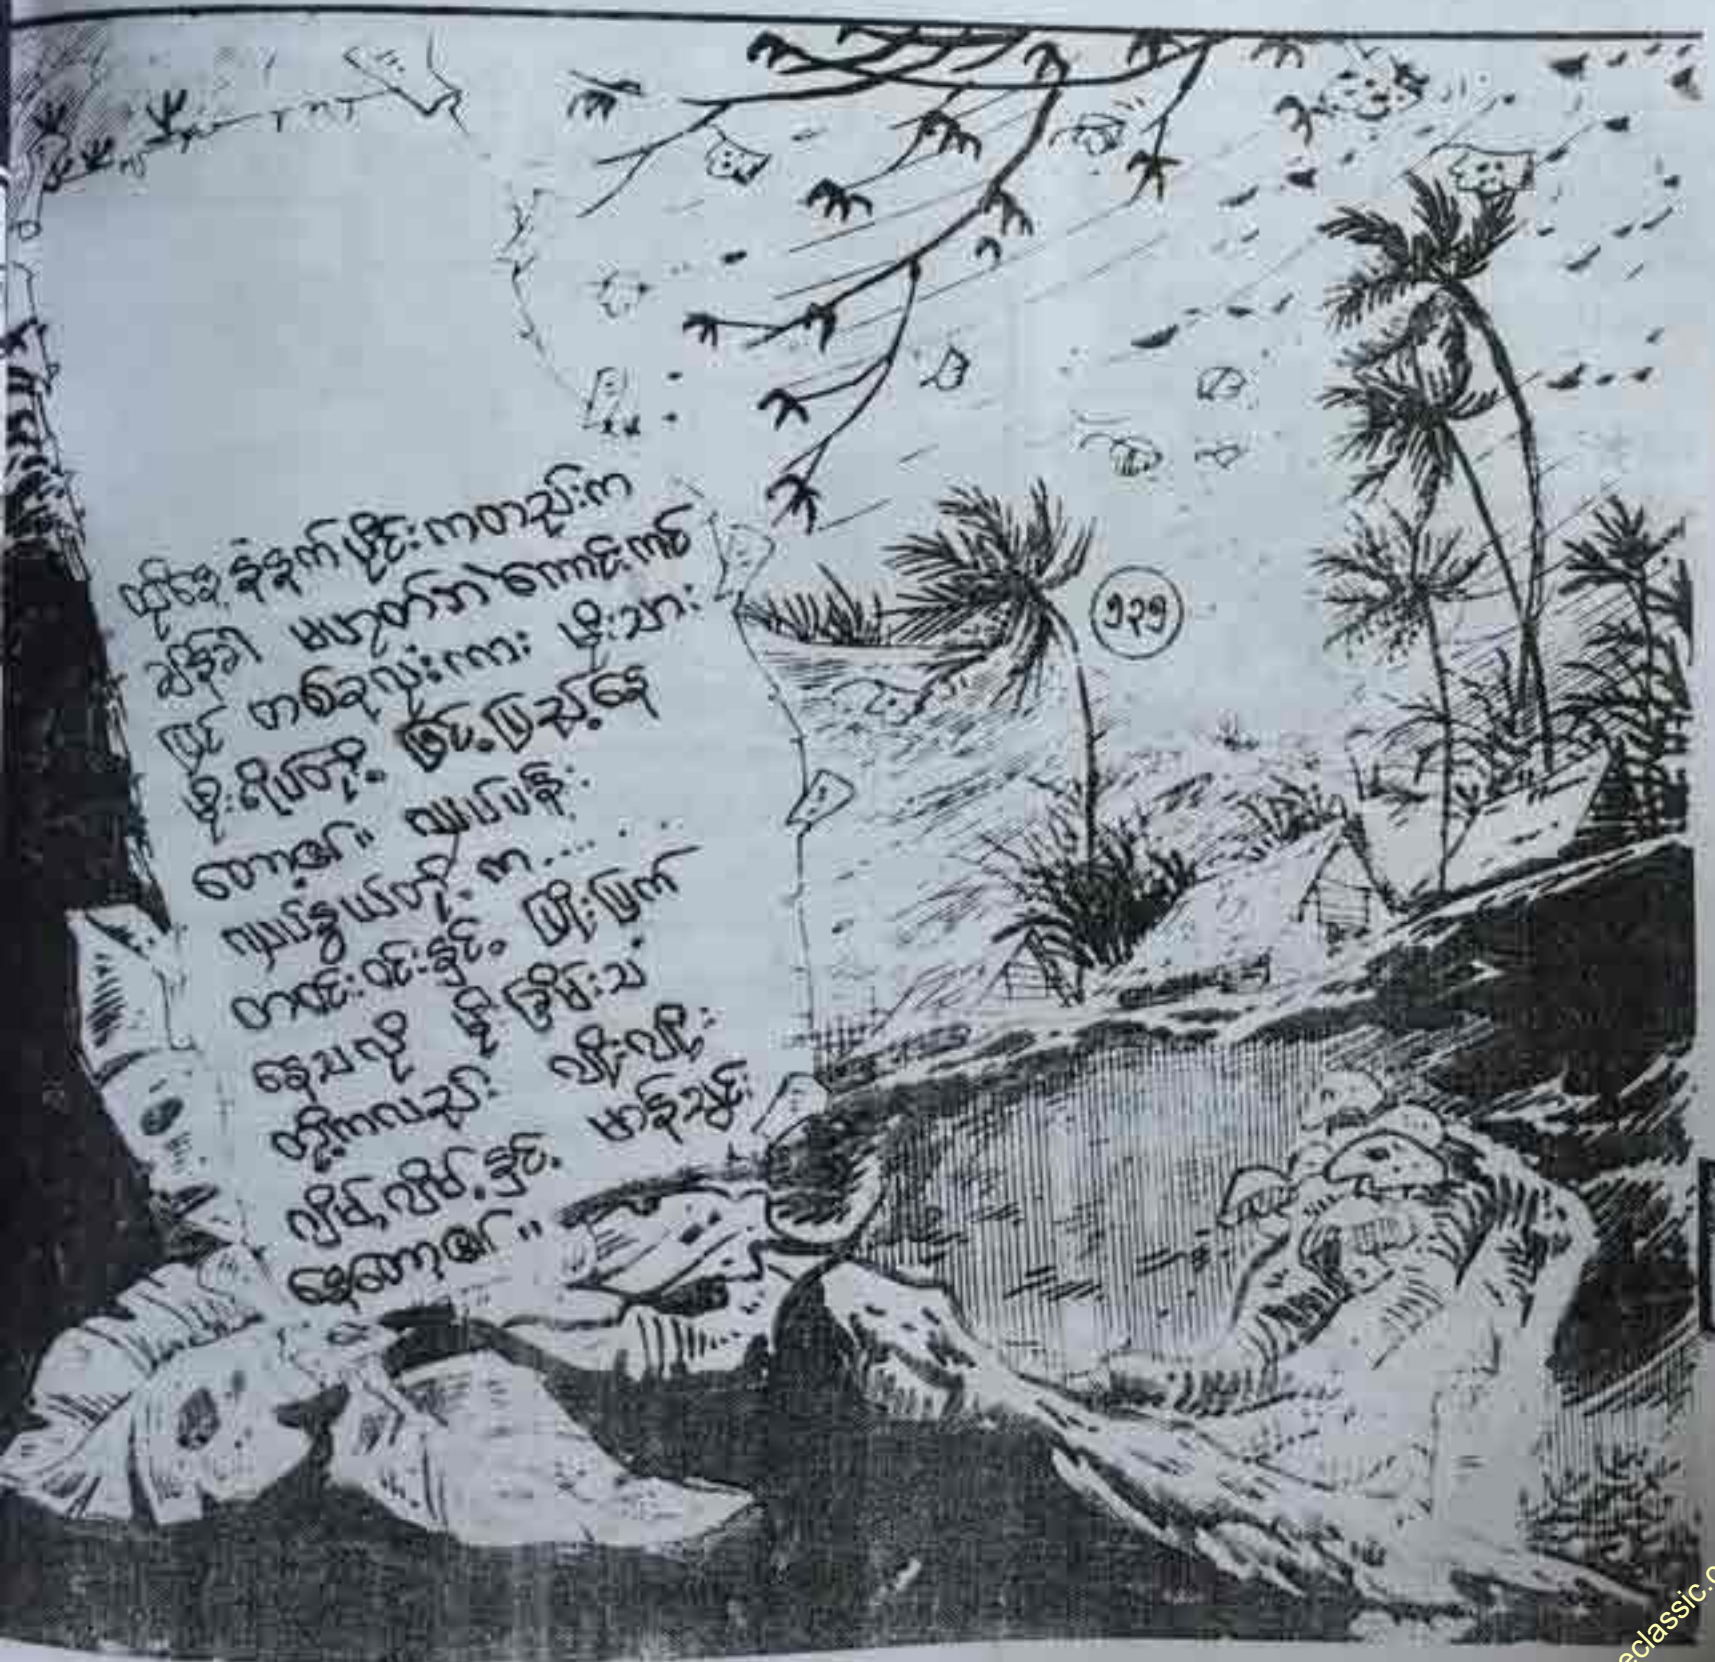 ထိုနေ့ နံနက်ပိုင်းကတည်းက
မဟုတ်ဘဲ ကောင်းကင်
ပြင် တစ်ခုလုံးကား မိုးသား
မိုးရိပ်တို့ ဖြင့် ပြည့်နေ
တော့၏။ လျှပ်ပန်း
လျှပ်နွယ်တို့ က....
တဝင်းဝင်းနှင့် ပြိုးပြက်
နေသလို မိုး ခြိမ်းသံ
တို့ကလည်း
နှင့် မာန်သွင်း
နေတော့၏။
၅၂၅
eclassic.c